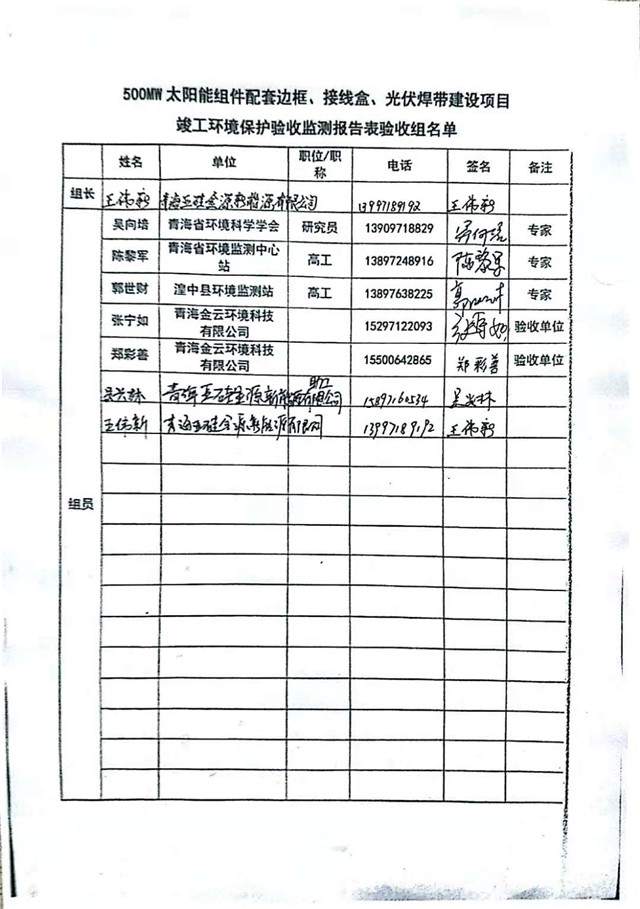 500MW太阳能组件配套边框、接线盒、光伏焊带建设项目
竣工环境保护验收监测报告表验收组名单
姓名 单位 职位/职称 电话 签名 备注
组长 王伟新 13997189192 王伟新
吴向培 青海省环境科学学会 研究员 13909718829 专家
陈黎军 青海省环境监测中心站 高工 13897248916 陈黎军 专家
郭世财 湟中县环境监测站 高工 13897638225 专家
张宁如 青海金云环境科技有限公司 15297122093 验收单位
郑彩善 青海金云环境科技有限公司 15500642865 郑彩善 验收单位
助工 15897160534
王伟新 13997189192 王伟新
组员